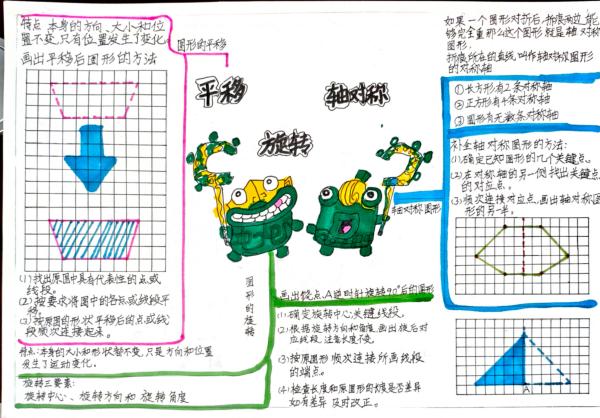 特点：本身的方向、大小和位
置不变,只有位置发生了变化
画出平移后图形的方法
(1)找出原图中具有代表性的点或
线段。
(2)按要求将图中的各点或线段平
移。
(3)按原图的形状平移后的点或线
段顺次连接起来。
图形的平移
平移
旋转
轴对称
轴对称图形
如果一个图形对折后,折痕两边能
够完全重那么这个图形就是轴对称
图形.
折痕所在的直线,叫作轴对称图形
的对称轴
①长方形有2条对称轴
②正方形有4条对称轴
③圆形有无数条对称轴
补全轴对称图形的方法:
(1)确定已知图形的几个关键点。
(2)在对称轴的另一侧找出关键点
的对应点。
(3)顺次连接对应点,画出轴对称图
形的另一半。
图形的旋转
特点:本身的大小和形状都不变,只是方向和位置
发生了运动变化。
旋转三要素:
旋转中心、旋转方向和旋转角度
画出绕点A逆时针旋转90°后的图形
(1)确定旋转中心关键线段。
(2)根据旋转方向和角度画出旋后对
应线段注意长度不变。
(3)按原图形顺次连接所画线段
的端点。
(4)检查长度和原图形的是否差异
如有差异及时改正。
A